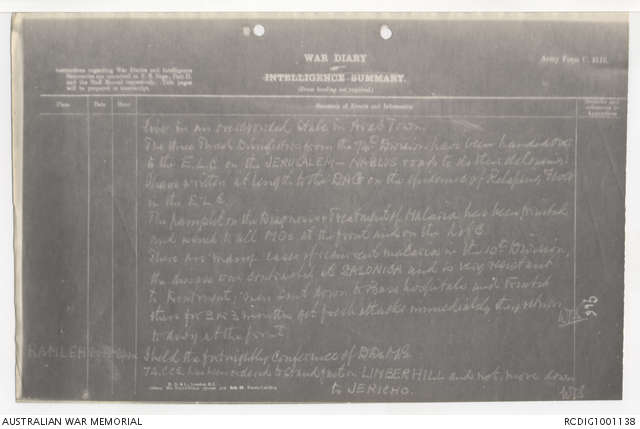 WAR DIARY
or
INTELLIGENCE SUMMARY.
(Erase heading not required.)
Army Form C. 2118.
Instructions regarding War Diaries and Intelligence
Summaries are contained in F. S. Regs., Part II.
and the Staff Manual respectively. Title pages
will be prepared in manuscript.
Place Date Hour Summary of Events and Information Remarks and references to Appendices
in an state in Town.
The three Thresh Disinfectors from the 74th Division have been handed over
to the E.L.C. on the JERUSALEM – NABLUS road to do their delousing.
I have written at length to the DAG on the of Relapsing Fever
in the E.L.C.
The pamphlet on the Diagnosis & Treatment of Malaria has been printed
and issued to all MOs at the front and on the L of C.
There are many cases of recurrent malaria in the 10th Division,
the disease was contracted at SALONICA and is very resistant
to treatment, men sent down to Base hospitals and treated
there for 2 or 3 months get fresh attacks immediately they return
to duty at the front.
RAMLEH I held the fortnightly Conference of
74 CCS has been ordered to stand fast on LIMBER HILL and not move down
to JERICHO.
AUSTRALIAN WAR MEMORIAL
RCDIG1001138